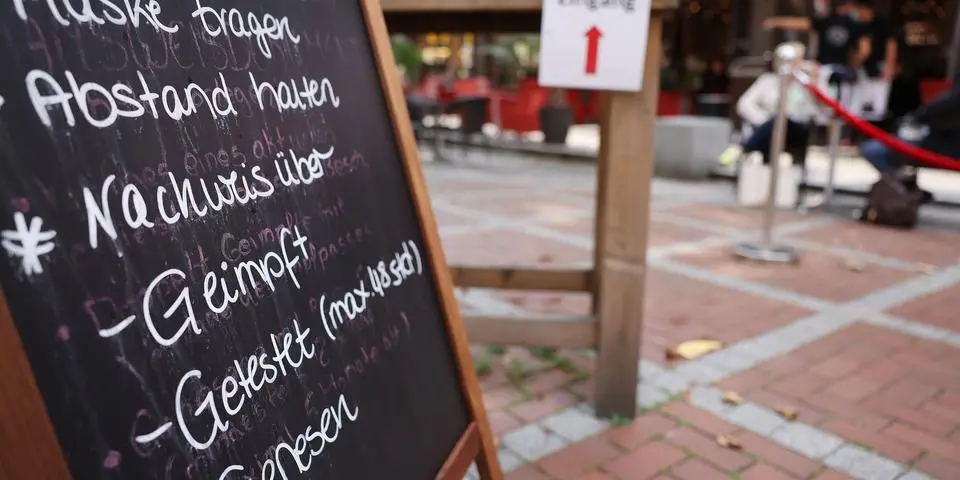 Maske tragen
Abstand halten
* Nachweis über
- Geimpft
- Getestet (max. 48 std)
Genesen
Eingang